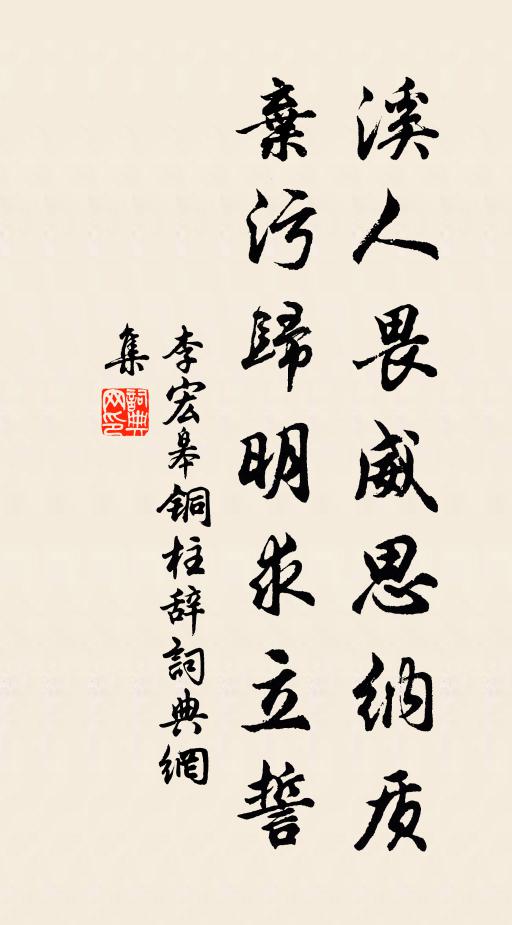 溪人畏威思纳质
棄污歸明求立誓
李宏皋铜柱辞詞典網
集
詞典
网印